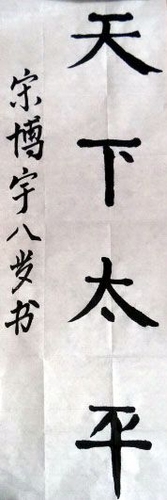 天下太平
宋博宇八岁书